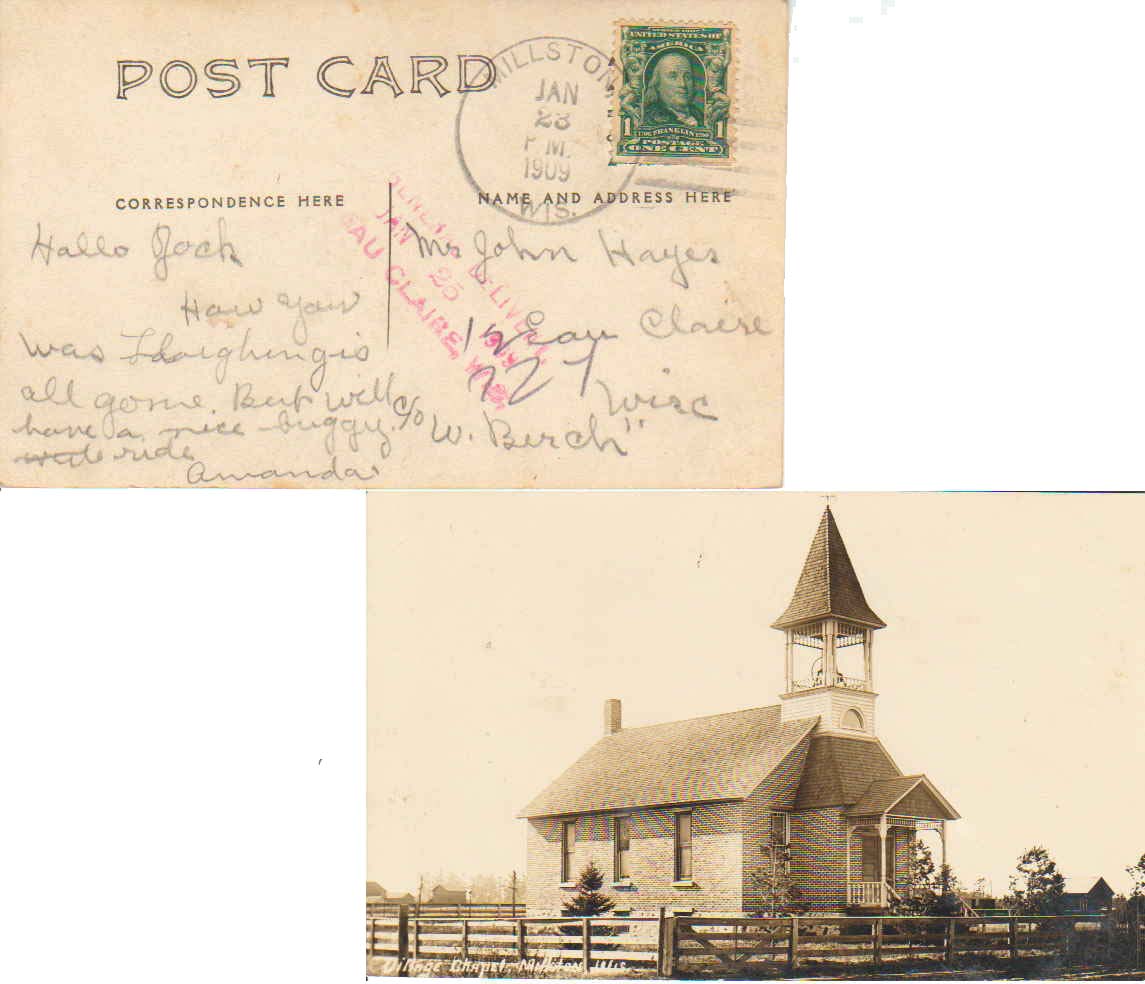 POST CARD
MILLSTON
JAN
23
P.M.
1909
WIS.
UNITED STATES OF
AMERICA
1 FRANKLIN 1
POSTAGE
ONE CENT
CORRESPONDENCE HERE
NAME AND ADDRESS HERE
JAN 25
EAU CLAIRE, WIS.
Hallo Jock
How you
was
all gone. But will
have a nice buggy
ride
Amanda
Mr John Hayes
Eau Claire
Wisc
c/o W. Birch"
Village Chapel, Millston, Wis